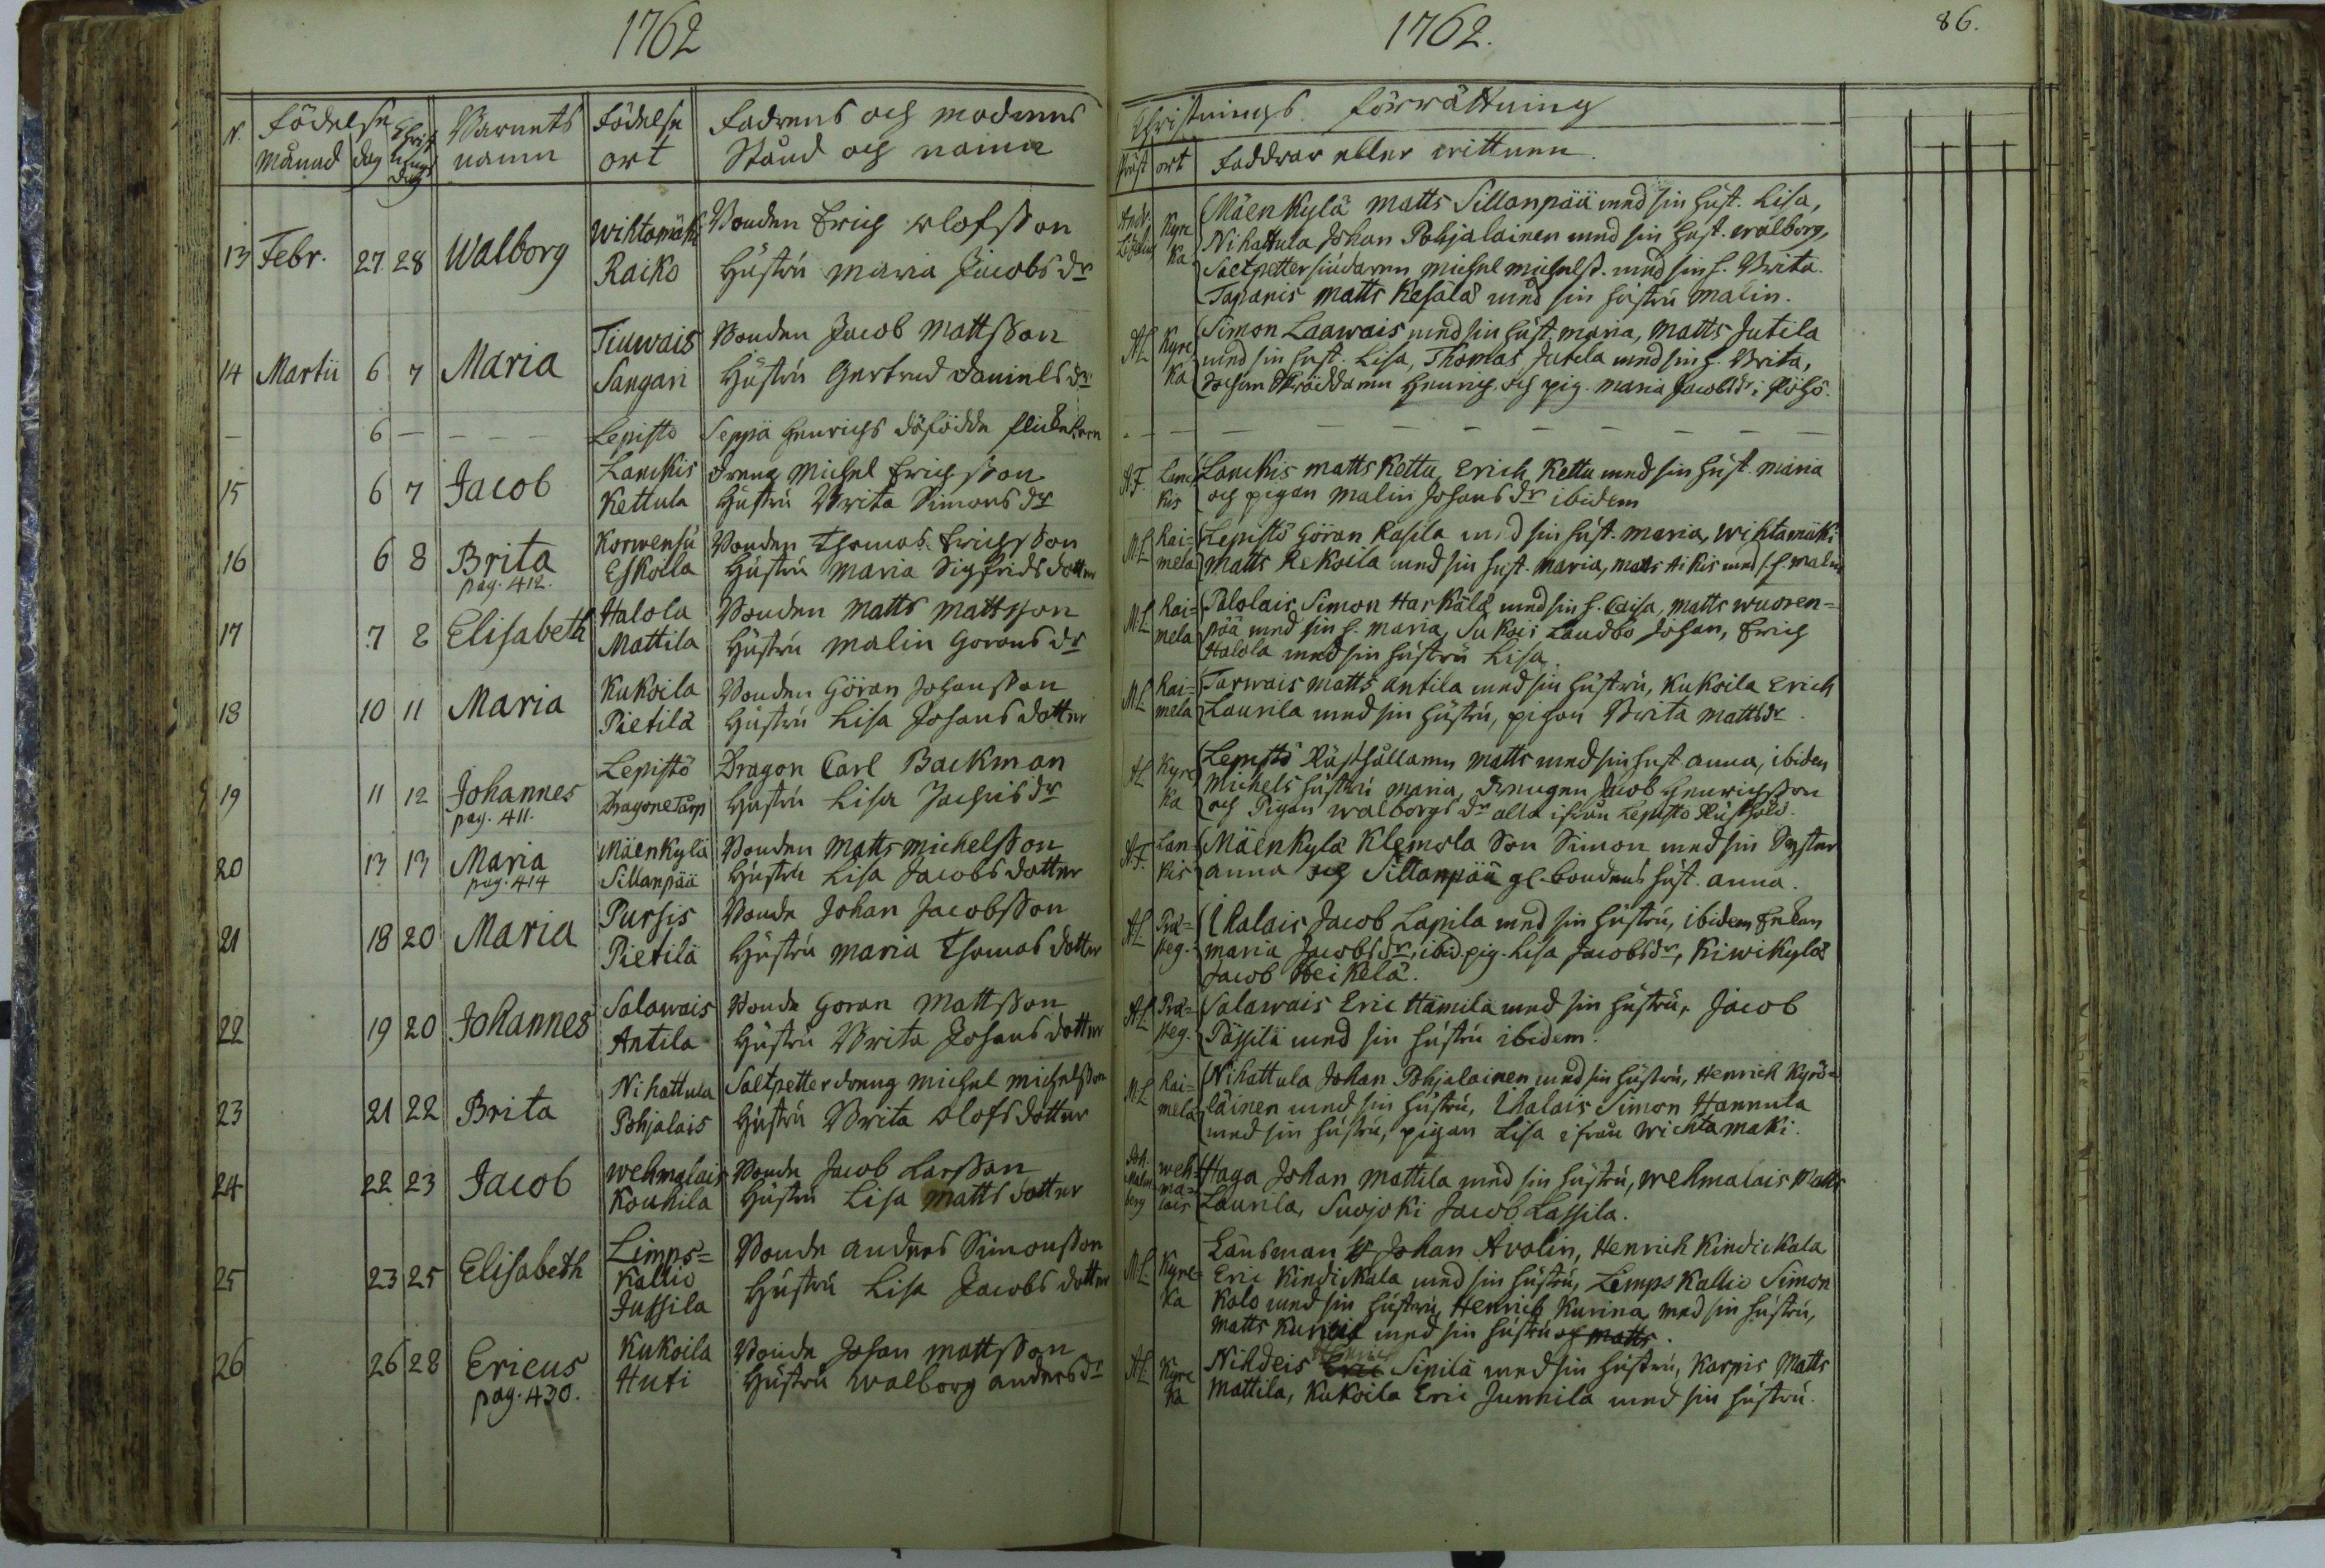 1762
N.
Födelse
Månad
dag
Christnings dag
Barnets
namn
Födelse
ort
Fadrens och modrens
Stånd och namn
13 Febr. 27 28 Walborg
Wihtamäki
Raiko
Bonden Erich Olofsson
Hustru Maria Jacobs dr
14 Martii 6 7 Maria
Tiuwais
Sangari
Bonden Jacob Mattsson
Hustru Gertrud Daniels dr
— 6 — — — —
Lepisto
Seppä Henrichs döfödde flickebarn
15 6 7 Jacob
Lanckis
Kettula
dreng Michel Erichsson
Hustru Brita Simons dr
16 6 8 Brita
pag. 412.
Korwensu
Eskoila
Bonden Thomas Erichsson
Hustru Maria Sigfrids dotter
17 7 8 Elisabeth
Halola
Mattila
Bonden Matts Mattsson
Hustru Malin Görans dr
18 10 11 Maria
Kukoila
Pietilä
Bonden Göran Johansson
Hustru Lisa Johans dotter
19 11 12 Johannes
pag. 411.
Lepistö
DragoneTorp
Dragon Carl Backman
Hustru Lisa Jachris dr
20 13 13 Maria
pag. 414
Mäenkylä
Sillanpää
Bonden Matts Michelsson
Hustru Lisa Jacobs dotter
21 18 20 Maria
Pursis
Pietilä
Bonde Johan Jacobsson
Hustru Maria Thomas dotter
22 19 20 Johannes
Salawais
Antila
Bonde Göran Mattsson
Hustru Brita Johans dotter
23 21 22 Brita
Nihattula
Pohjalais
Saltpetter dreng Michel Michelsson
Hustru Brita Olofs dotter
24 22 23 Jacob
Wehmalais
Kouhila
Bonde Jacob Larsson
Hustru Lisa Matts dotter
25 23 25 Elisabeth
Limps=
Kallio
Jussila
Bonde Anders Simonsson
Hustru Lisa Jacobs dotter
26 26 28 Ericus
pag. 430.
Kukoila
Huti
Bonde Johan Mattsson
Hustru Walborg Anders dr
1762.
86.
Christnings Förrättning
Präst
ort
Faddrar eller wittnen.
Kyre
ka
Mäenkylä Matts Sillanpää med sin hust. Lisa,
Nihattula Johan Pohjalainen med sin hust. Walborg,
Saltpettersiudaren Michel Michelss. med sin h. Brita.
Tapanis Matts Kesälä med sin hustru Malin.
AL Kyre
ka
Simon Laawais med sin hust. Maria, Matts Jutila
med sin hust. Lisa, Thomas Jutila med sin h. Brita,
Henrich och pig. Maria Jacobs dr
A.F. Lanc
kis
Lanckis Matts Kettu, Erich Kettu med sin hust. Maria
och pigan Malin Johans dr ibidem
M.L. Rai=
mela
Lepistö Göran Rasila med sin hust. Maria, Wihtamäki
Matts Rekoila med sin hust. Maria, Matts Aikis med s. h. Malin
M.L. Rai=
mela
Palolais Simon Harkälä med sin h. Caisa, Matts Wuoren=
pää med sin h. Maria, Sukois Landbo Johan, Erich
Halola med sin hustru Lisa.
M.L. Rai=
mela
Tarwais Matts Antila med sin hustru, Kukoila Erich
Laurila med sin hustru, pigan Brita Matts dr.
AL Kyre
ka
Lepistö Rusthållaren Matts med sin hust. Anna, ibidem
Michels hustru Maria, Drengen Jacob Henrichsson
och Pigan Walborgs dr alla ifrån Lepisto Rusthold.
A.F. Lan=
kis
Mäenkylä Klemola Son Simon med sin Syster
Anna och Sillanpää gl. bondens hust. Anna.
AL Præ=
steg.
Ihalais Jacob Lapila med sin hustru, ibidem Enkan
Maria Jacobs dr, ibid. pig. Lisa Jacobs dr, Kiwikylä
Jacob Heikelä.
AL Præ=
steg.
Salawais Eric Hämilä med sin hustru, Jacob
Pässilä med sin hustru ibidem.
M.L. Rai=
mela
Nihattula Johan Pohjalainen med sin hustru, Henrich Kyrö=
läinen med sin hustru, Ihalais Simon Hannula
med sin hustru, pigan Lisa ifrån Wichtamaki.
Joh.
Malm
berg
weh=
ma=
lais
Haga Johan Mattila med sin hustru, Wehmalais Matts
Laurila, Suojoki Jacob Lassila.
M.L. Kyre=
ka
Länsman Johan Avolin, Henrich Kindickala
Eric Kindickala med sin hustru, Lempskallio Simon
Kalo med sin hustru, Henrich Kurina med sin hustru,
Matts med sin hustru och Matts.
AL Kyre
ka
Nihdeis Eric Henrich Sipilä med sin hustru, Karpis Matts
Mattila, Kukoila Eric Junnila med sin hustru.